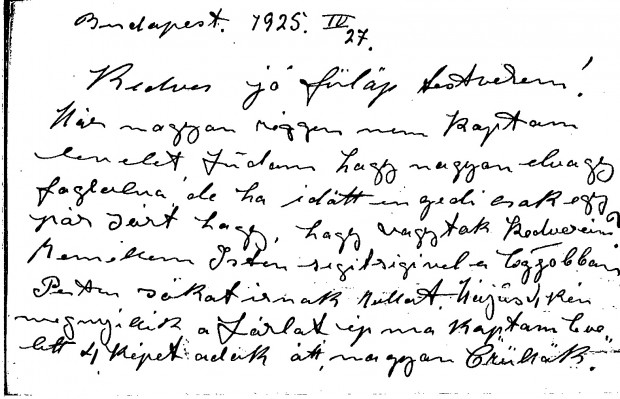 Budapest. 1925. IV 27.
Kedves jó fülöp testverem!
Már nagyan riggen nem kaptam
levelet, tudam hagy nagyan elvagy
faglalva, de ha idött engedi csak egy
pár sórt hagy, hagy vagytak kedveseim?
Remélem Isten segitsigivel a legjobban
Pesten sokat irnak rollat. Május 4 kén
megnyilik a tárlat ép ma kaptam leve
lett 4 képet adák átt, nagyan Crülták.